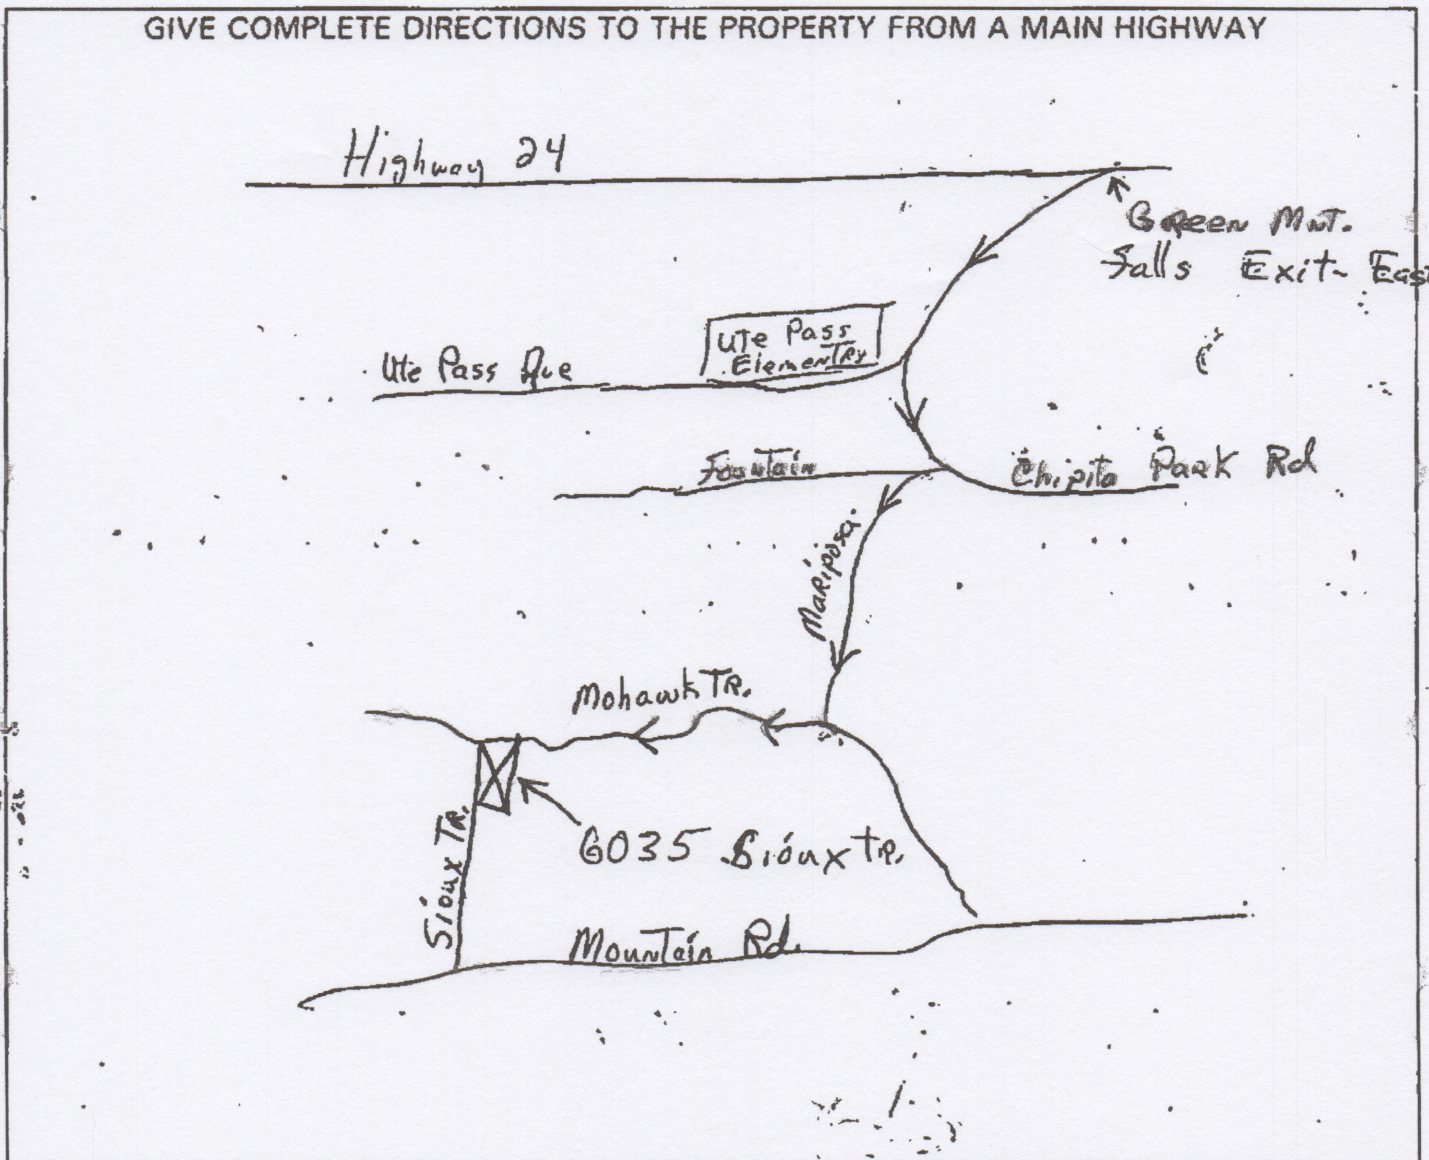 GIVE COMPLETE DIRECTIONS TO THE PROPERTY FROM A MAIN HIGHWAY
Highway 24
Green Mnt.
Falls Exit- East
Ute Pass
Elementry
Ute Pass Ave
Fountain
Chipita Park Rd
Mariposa
Mohawk TR.
6035 Sioux tr.
Sioux TR.
Mountain Rd.